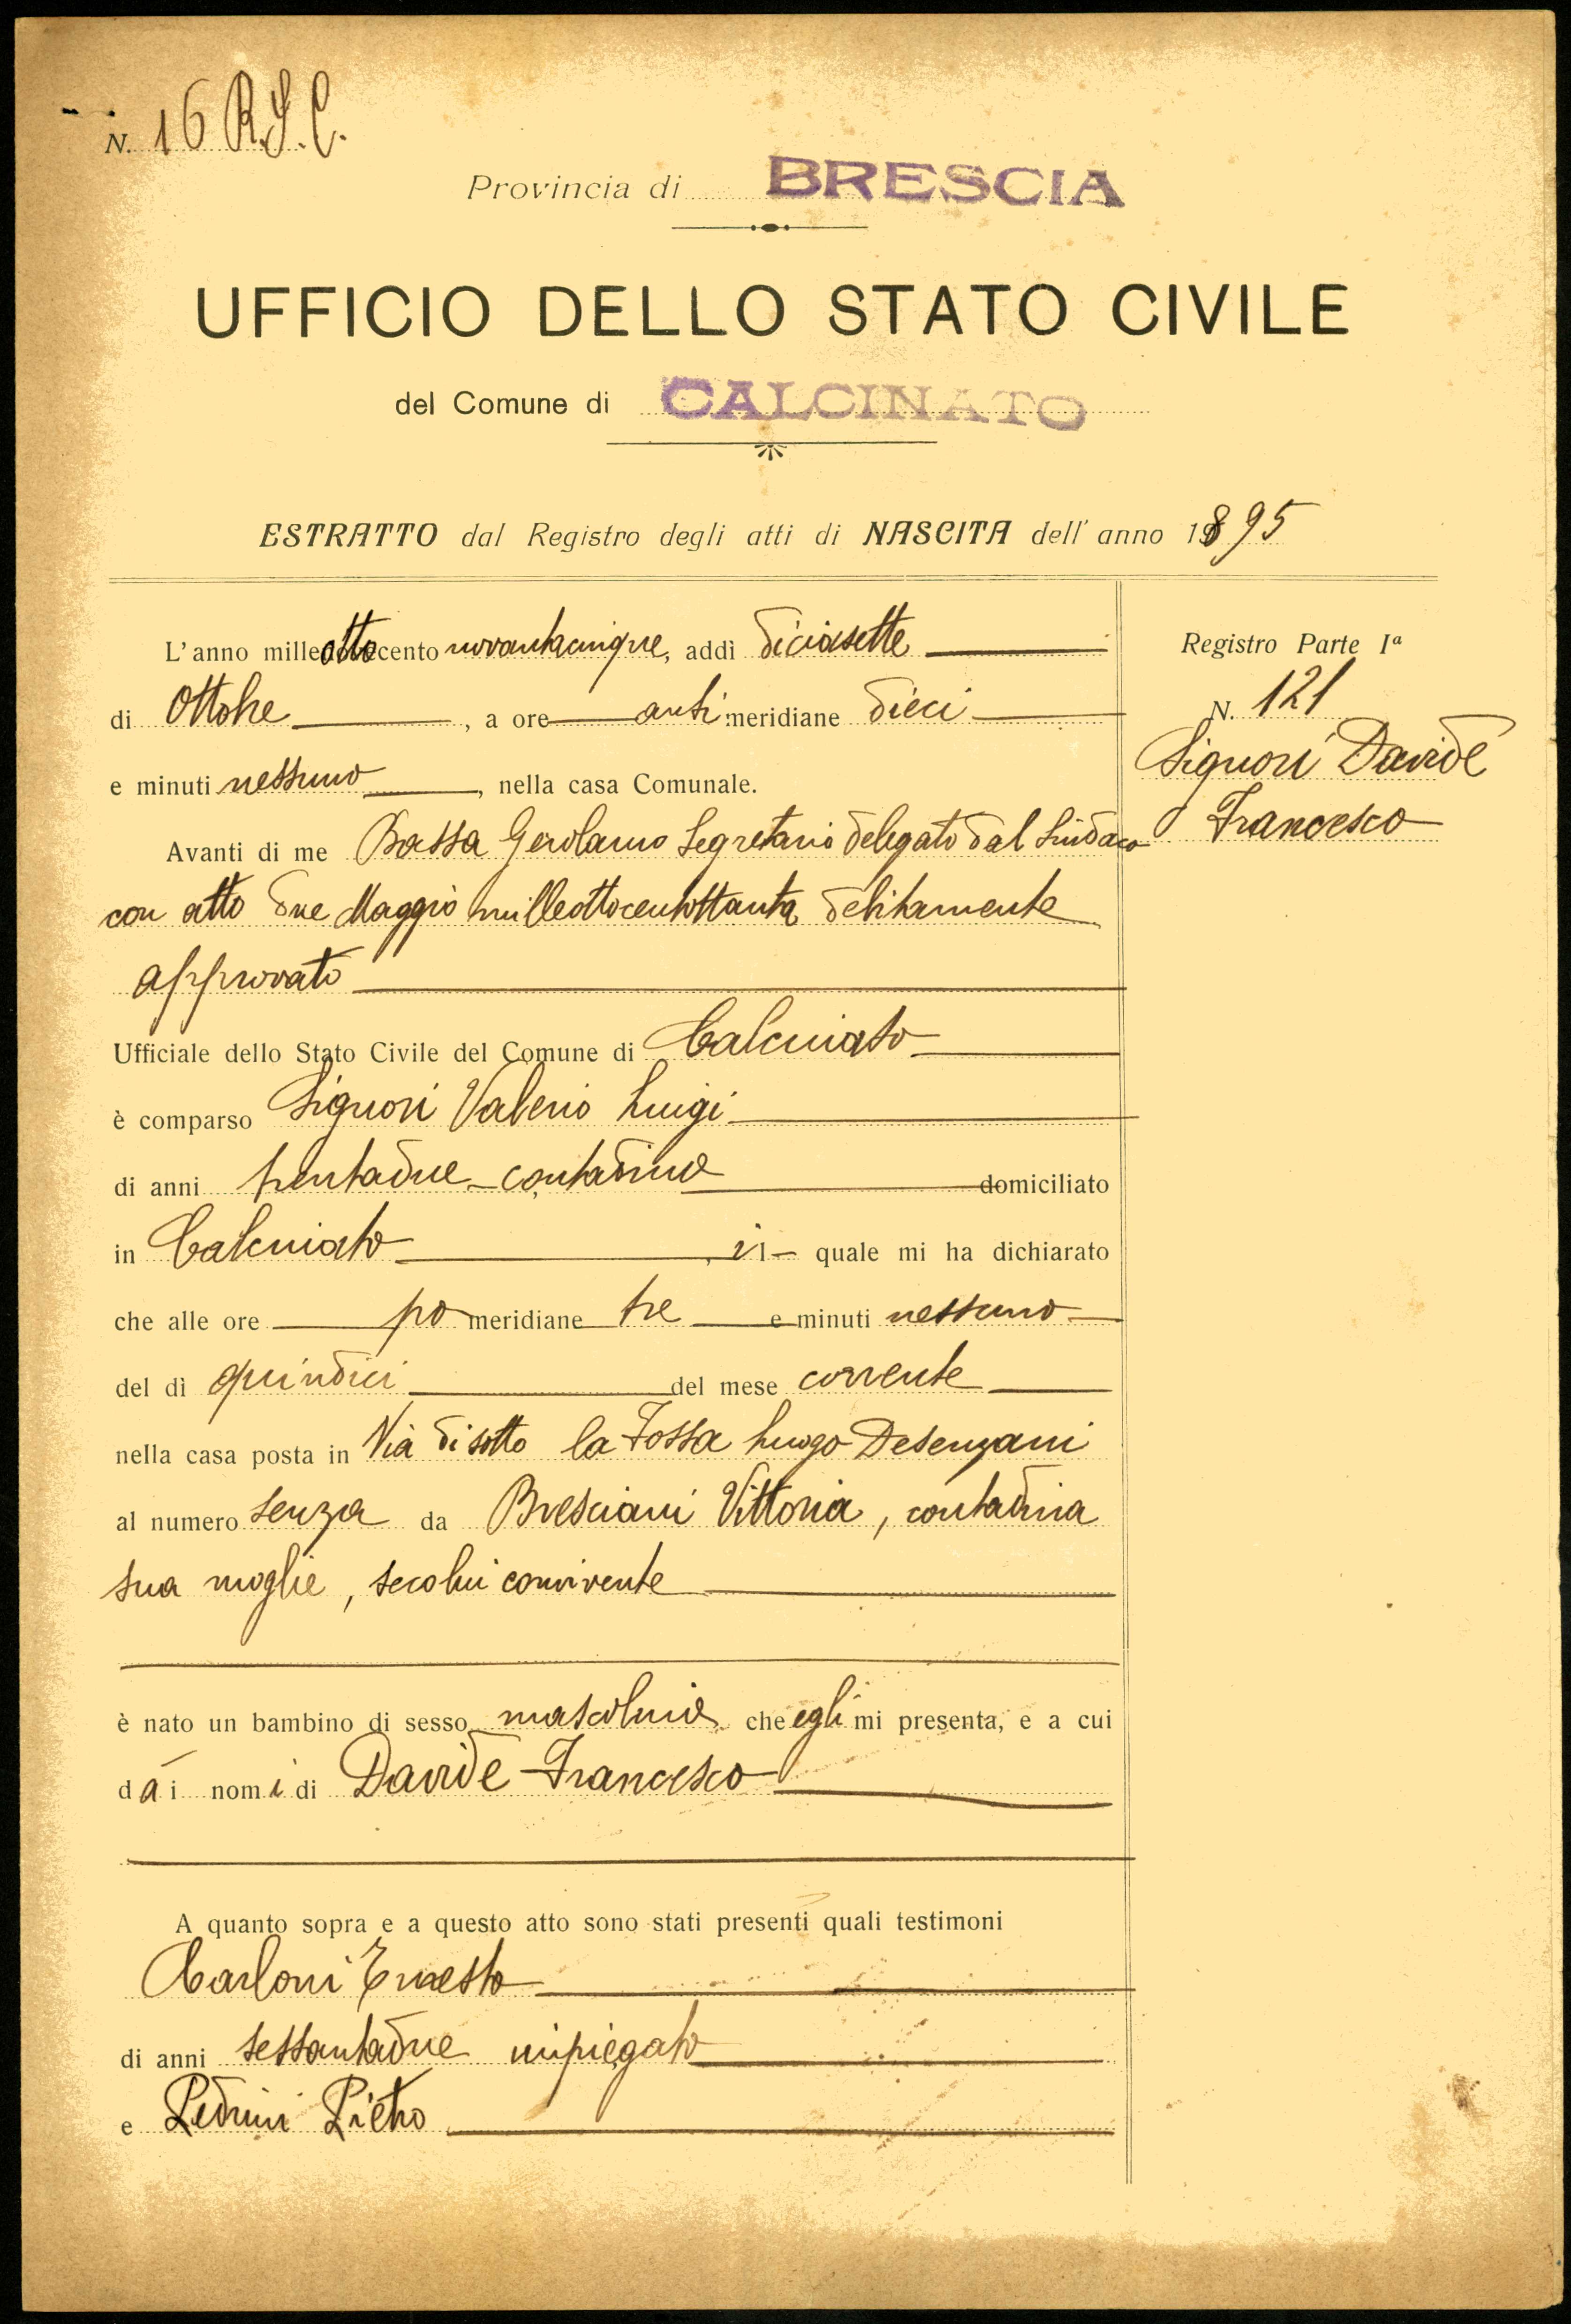 N. 16 R.S.C.
Provincia di BRESCIA
UFFICIO DELLO STATO CIVILE
del Comune di CALCINATO
ESTRATTO dal Registro degli atti di NASCITA dell' anno 1895
L'anno milleottocento novantacinque, addì diciasette
di Ottobre, a ore antimeridiane dieci
e minuti nessuno, nella casa Comunale.
Avanti di me Bassa Gerolamo Segretario delegato dal Sindaco
con atto due Maggio milleottocentottanta debitamente
approvato
Ufficiale dello Stato Civile del Comune di Calcinato
è comparso Signori Valerio Luigi
di anni trentadue contadino domiciliato
in Calcinato, il quale mi ha dichiarato
che alle ore pomeridiane tre e minuti nessuno
del dì quindici del mese corrente
nella casa posta in Via di sotto la Fossa luogo Desenzani
al numero senza da Bresciani Vittoria, contadina
sua moglie, secolui convivente
è nato un bambino di sesso mascolino che egli mi presenta, e a cui
dà i nomi di Davide Francesco
A quanto sopra e a questo atto sono stati presenti quali testimoni
Carloni Ernesto
di anni sessantadue impiegato
e Pedrini Pietro
Registro Parte Iª
N. 121
Signori Davide
Francesco